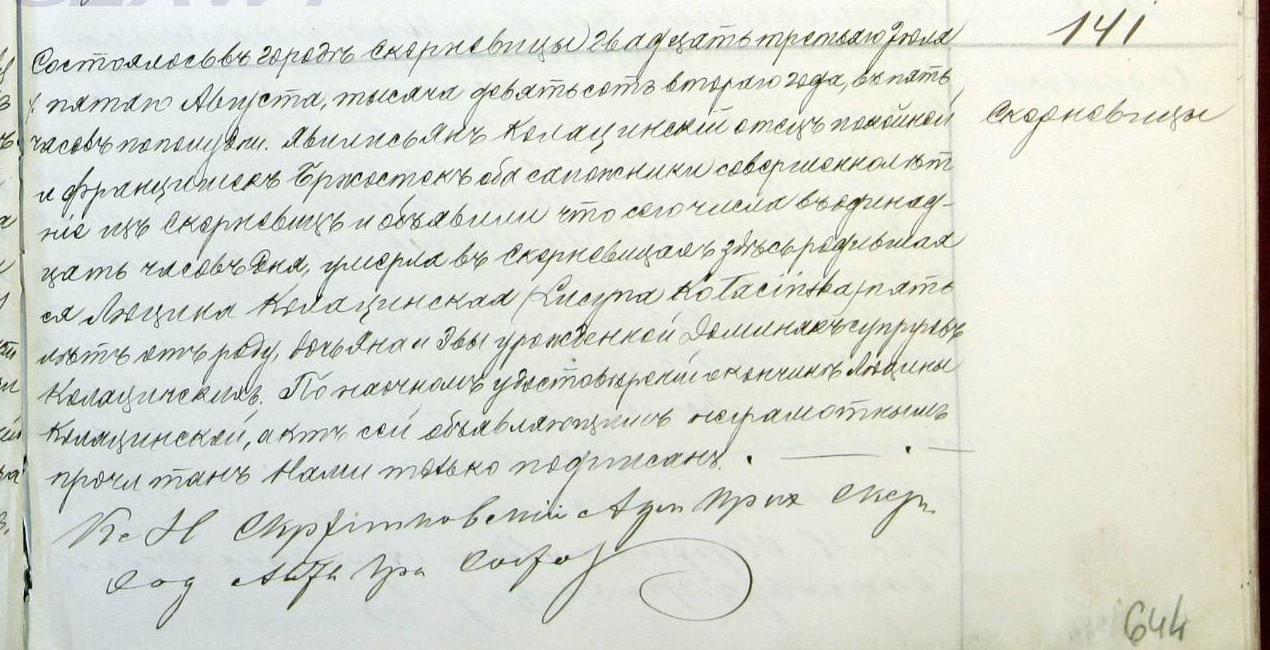 141
Скерневицы
Состоялось въ городѣ Скерневицы двадцать третьяго Іюля
пятаго Августа, тысяча девятьсотъ втораго года, въ пять
часовъ пополудни. Явились Янъ Колацинскій отецъ покойной
и Францишекъ Бржостекъ оба сапожники совершеннолѣт
ніе изъ Скерневицъ и объявили что сего числа въ одинад-
цать часовъ дня, умерла въ Скерневицахъ здѣсь родившая
ся Люцина Колацинская (Lucyna Kołacińska) пять
лѣтъ отъ роду, дочь Яна и Эвы урожденной Доминякъ супруговъ
Колацинскихъ. По наочномъ удостовѣреніи о кончинѣ Люцины
Колацинской, актъ сей объявляющимъ неграмотнымъ
прочитанъ Нами только подписанъ.
Кс Н
644